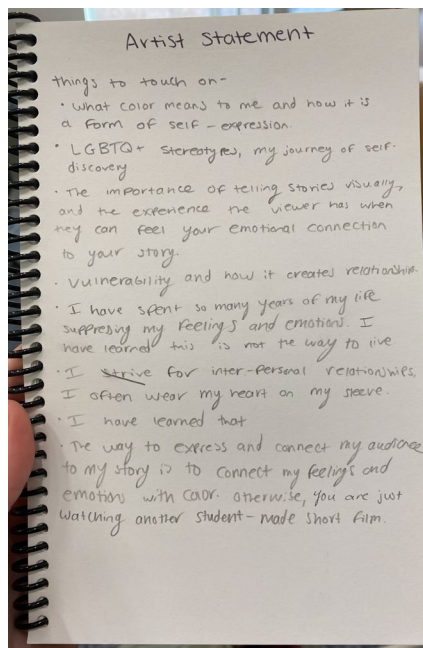 Artist Statement
things to touch on-
• What color means to me and how it is
a form of self-expression.
• LGBTQ+ stereotypes, my journey of self-
discovery
• The importance of telling stories visually,
and the experience the viewer has when
they can feel your emotional connection
to your story.
• Vulnerability and how it creates relationships.
• I have spent so many years of my life
suppresing my feelings and emotions. I
have learned this is not the way to live
• I strive for inter-personal relationships,
I often wear my heart on my sleeve.
• I have learned that
• The way to express and connect my audience
to my story is to connect my feelings and
emotions with color. otherwise, you are just
watching another student-made short film.